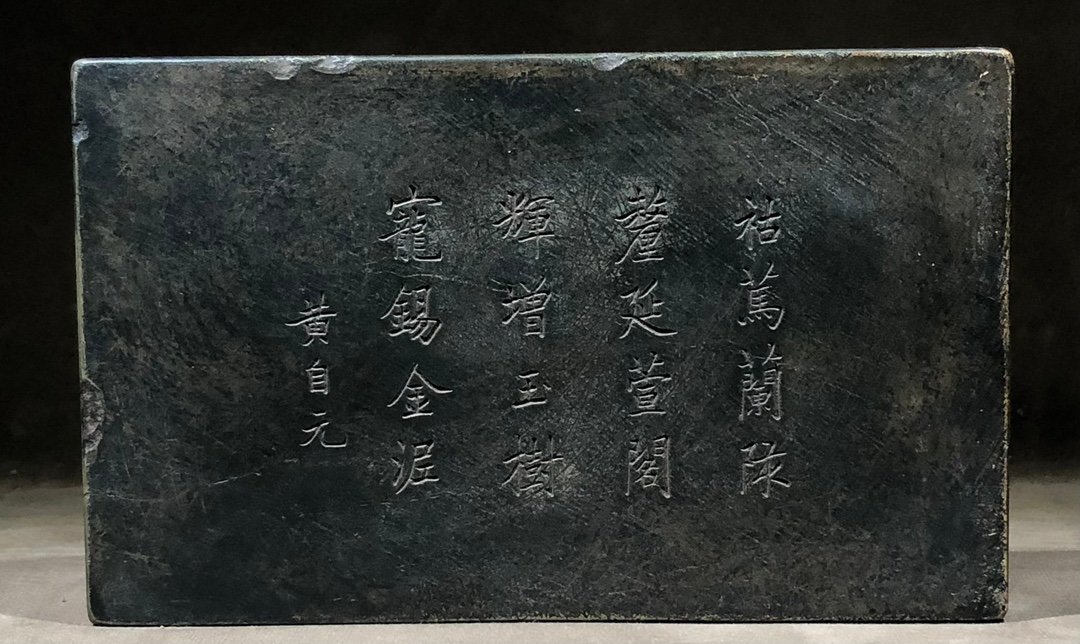 祜篤蘭陔
釐延萱閣
輝增玉樹
寵錫金泥
黄自元